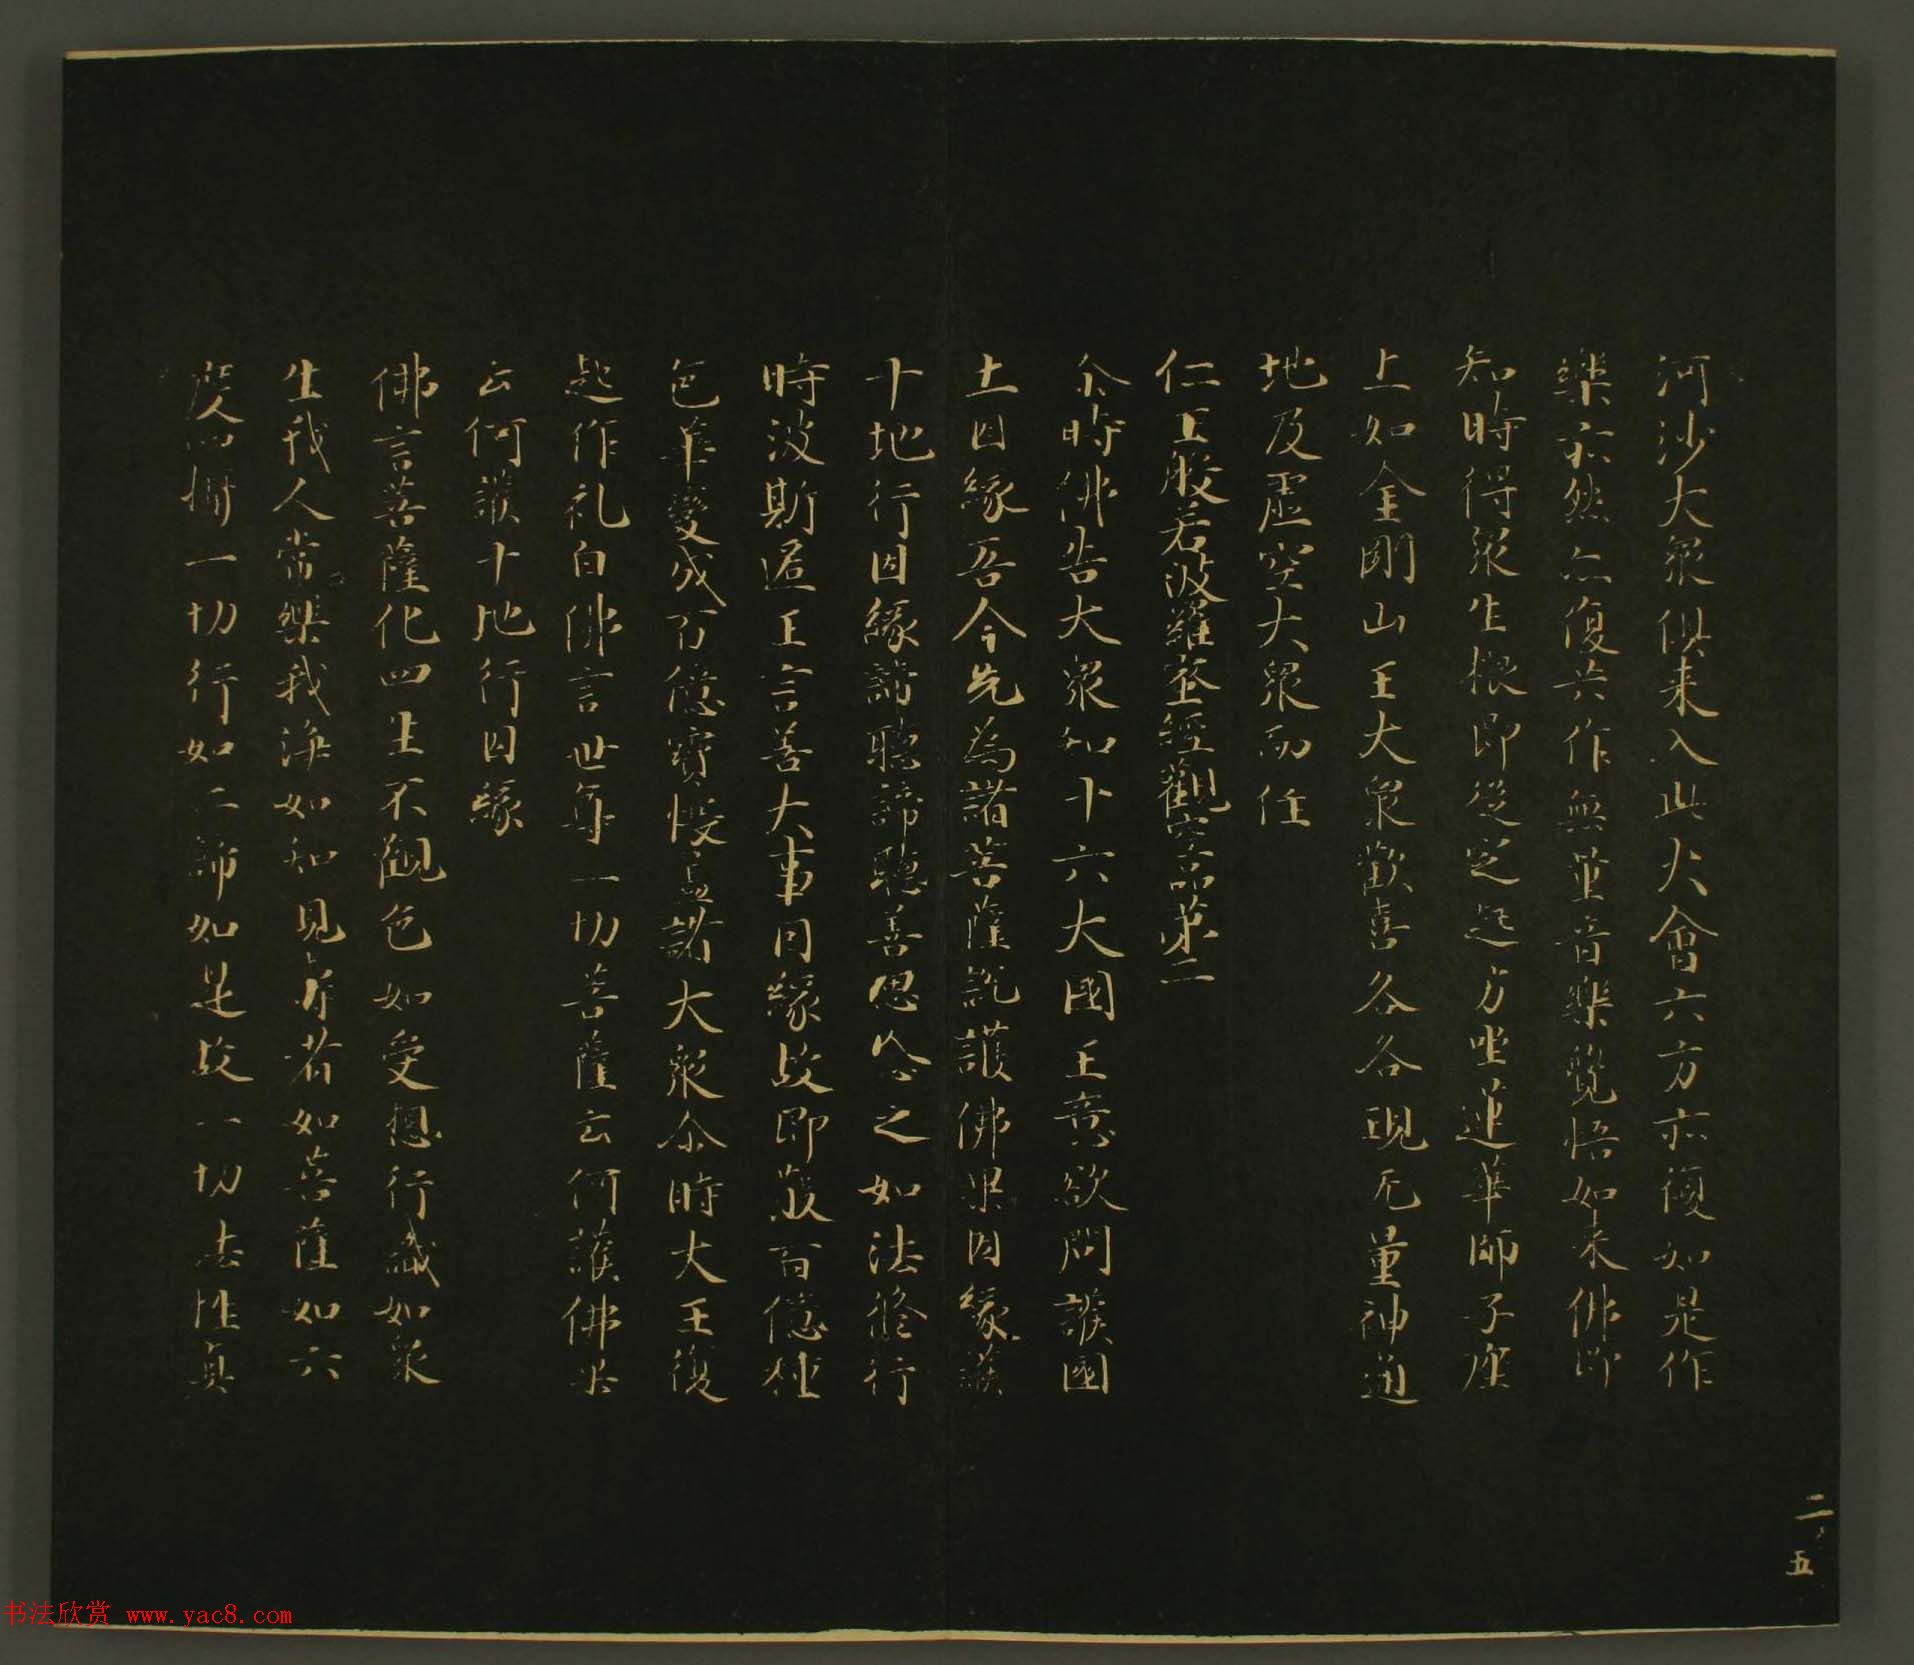 河沙大眾俱来入此大會六方亦復如是作
樂亦然亦復共作無量音樂覺悟如来佛即
知時得眾生根即從定起方坐蓮華師子座
上如金剛山王大眾歡喜各各現无量神通
地及虛空大眾而住
仁王般若波羅蜜經觀空品苐二
尒時佛告大眾知十六大國王意欲問護國
土因緣吾今先為諸菩薩說護佛果因緣護
十地行因緣諦聽諦聽善思念之如法修行
時波斯匿王言善大事因緣故即散百億種
色華變成百億寶帳盖諸大眾尒時大王復
起作礼白佛言世尊一切菩薩云何護佛果
云何護十地行因緣
佛言菩薩化四生不觀色如受想行識如眾
生我人常樂我淨如知見壽者如菩薩如六
度四攝一切行如二諦如是故一切法性真
二五
书法欣赏 www.yac8.com